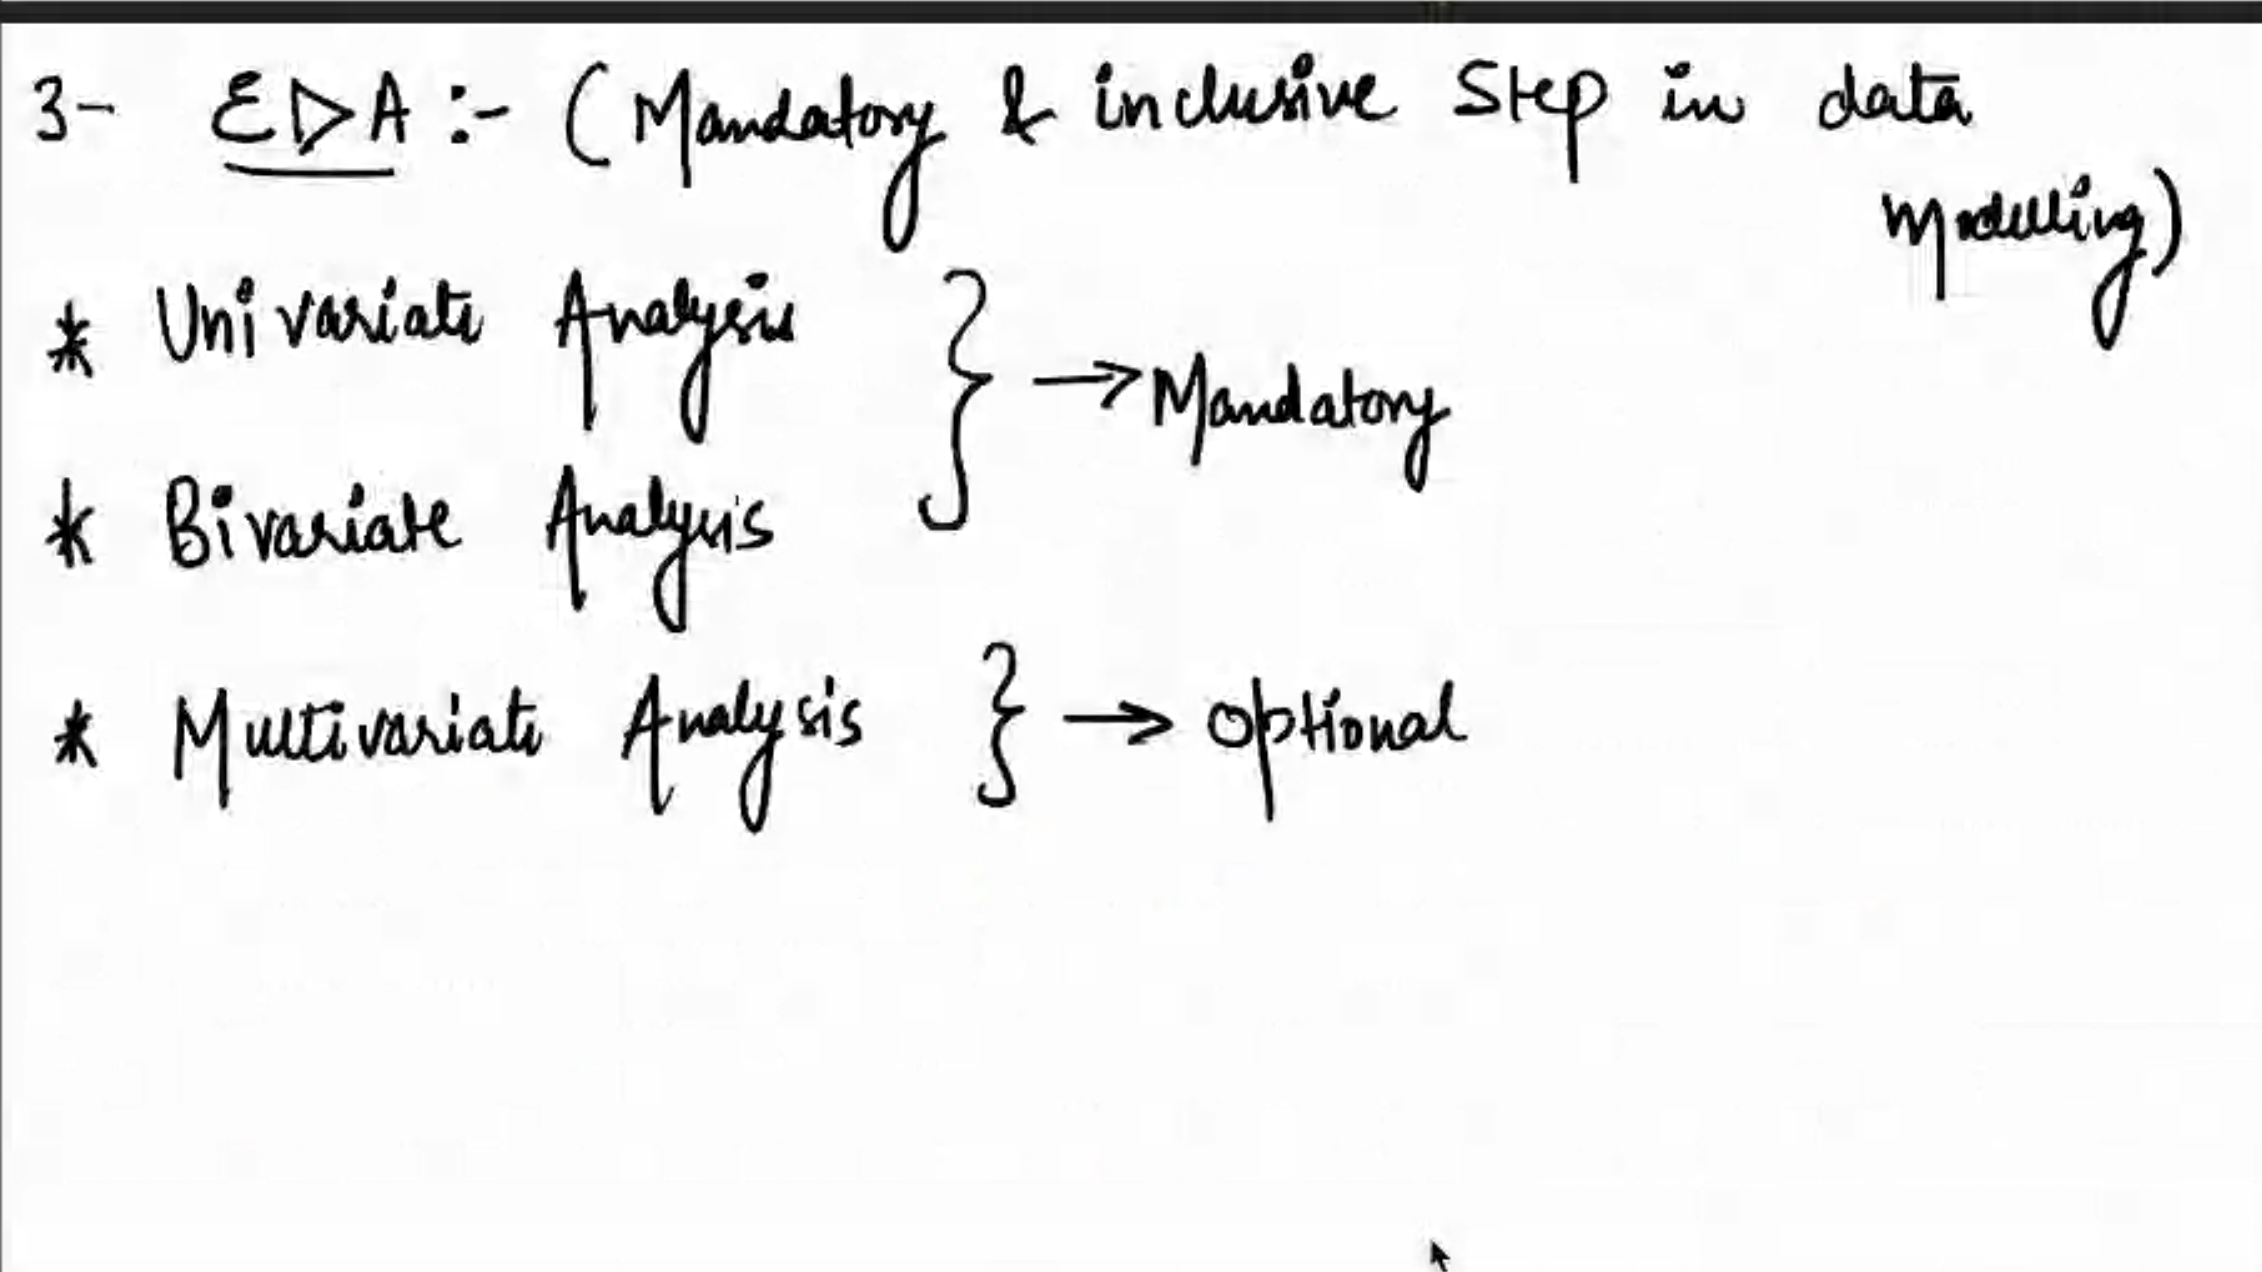 3- EDA :- (Mandatory & inclusive Step in data
modelling)
* Univariate Analysis
} → Mandatory
* Bivariate Analysis
* Multivariate Analysis } → Optional